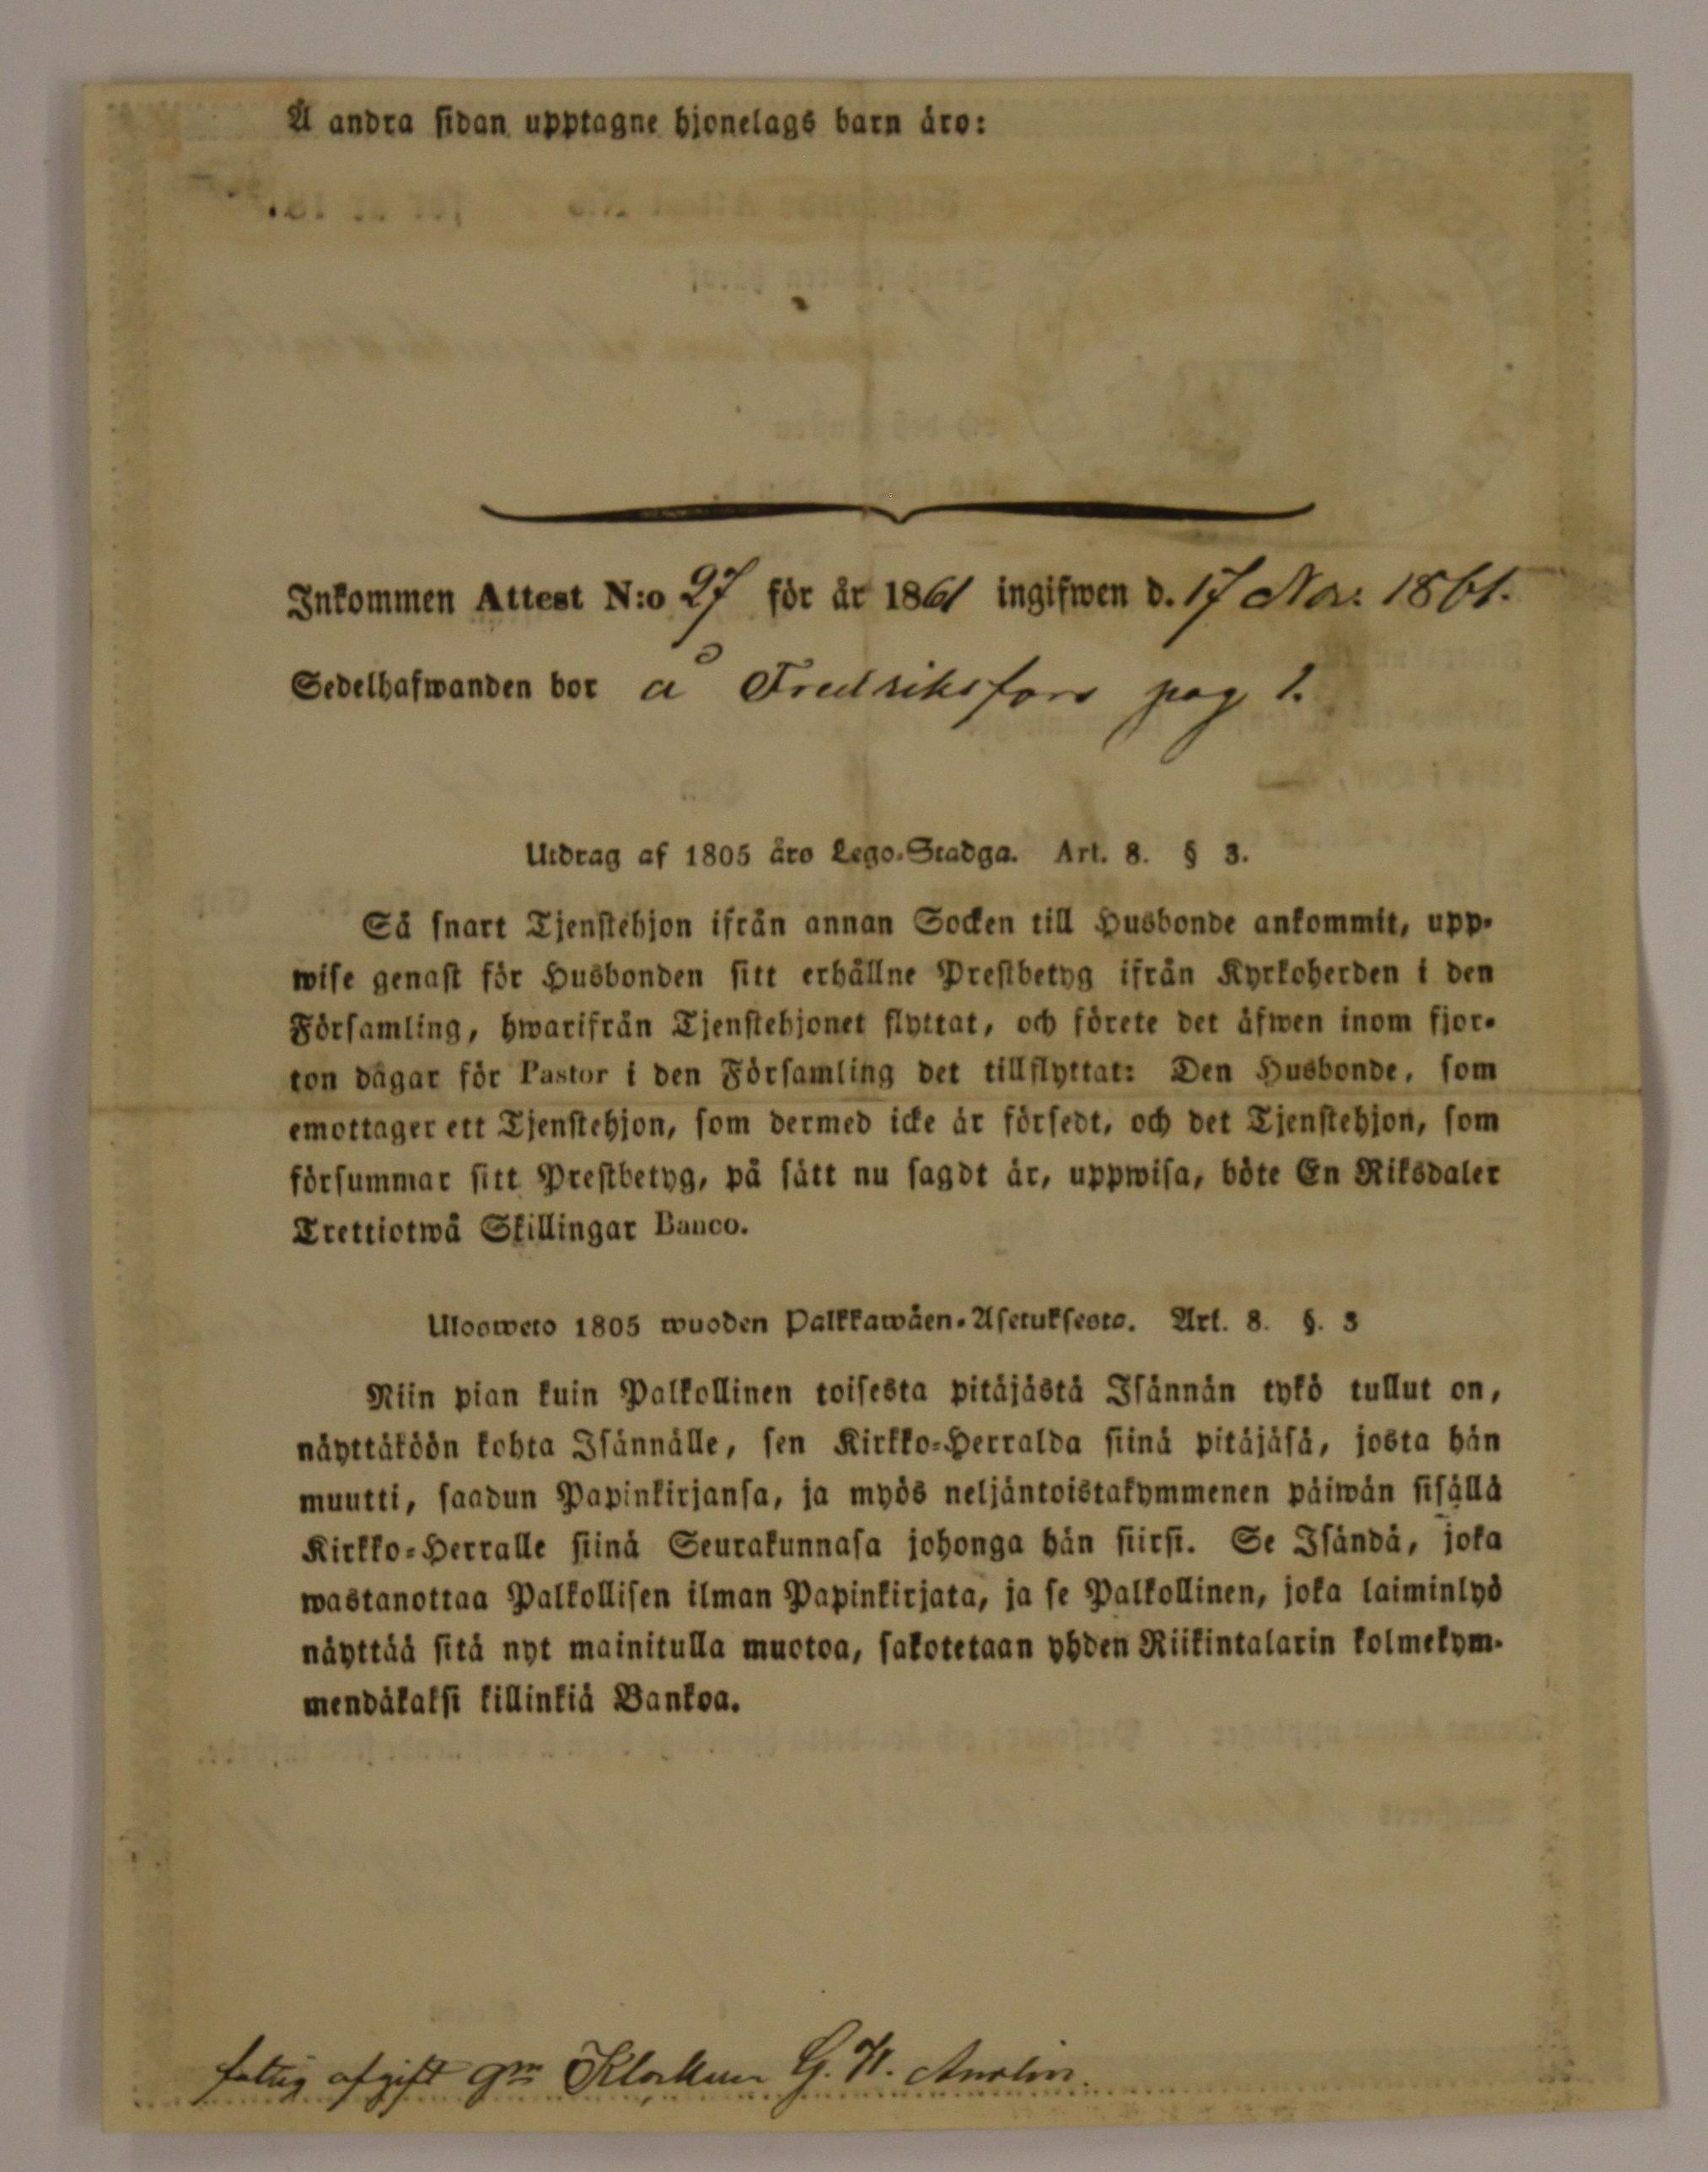 Å andra sidan upptagne hjonelags barn äro:
Inkommen Attest N:o 27 för år 1861 ingifwen d. 17 Nov. 1861.
Sedelhafwanden bor å Fredriksfors pag 1.
Utdrag af 1805 års Lego-Stadga. Art. 8. § 3.
Så snart Tjenstehjon ifrån annan Socken till Husbonde ankommit, upp-
wise genast för Husbonden sitt erhållne Prestbetyg ifrån Kyrkoherden i den
Församling, hwarifrån Tjenstehjonet flyttat, och förete det äfwen inom fjor-
ton dagar för Pastor i den Församling det tillflyttat: Den Husbonde, som
emottager ett Tjenstehjon, som dermed icke är försedt, och det Tjenstehjon, som
försummar sitt Prestbetyg, på sätt nu sagdt är, uppwisa, böte En Riksdaler
Trettiotwå Skillingar Banco.
Ulosweto 1805 wuoden Palkkawäen-Asetuksesta. Art. 8. §. 3
Niin pian kuin Palkollinen toisesta pitäjästä Isännän tykö tullut on,
näyttäköön kohta Isännälle, sen Kirkko-Herralda siinä pitäjäsä, josta hän
muutti, saadun Papinkirjansa, ja myös neljäntoistakymmenen päiwän sisällä
Kirkko-Herralle siinä Seurakunnasa johonga hän siirsi. Se Isändä, joka
wastanottaa Palkollisen ilman Papinkirjata, ja se Palkollinen, joka laiminlyö
näyttää sitä nyt mainitulla muotoa, sakotetaan yhden Riikintalarin kolmekym-
mendäkaksi killinkiä Bankoa.
fattig afgift gm Klockun G. W.